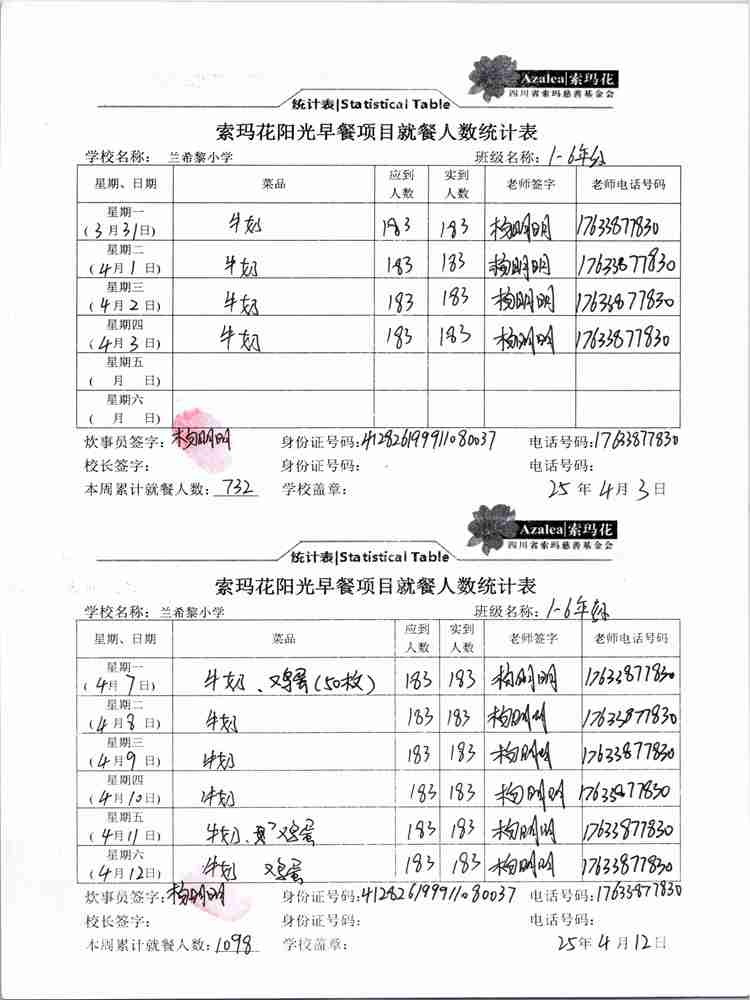 Azalea|索玛花
四川省索玛慈善基金会
统计表|Statistical Table
索玛花阳光早餐项目就餐人数统计表
学校名称： 兰希黎小学 班级名称：1-6年级
星期、日期 菜品 应到人数 实到人数 老师签字 老师电话号码
星期一 (3月31日) 牛奶 183 183 杨明明 17633877830
星期二 (4月1日) 牛奶 183 183 杨明明 17633877830
星期三 (4月2日) 牛奶 183 183 杨明明 17633877830
星期四 (4月3日) 牛奶 183 183 杨明明 17633877830
星期五 ( 月 日)
星期六 ( 月 日)
炊事员签字：杨明明 身份证号码：412826199911080037 电话号码：17633877830
校长签字： 身份证号码： 电话号码：
本周累计就餐人数：732 学校盖章： 25年4月3日
Azalea|索玛花
四川省索玛慈善基金会
统计表|Statistical Table
索玛花阳光早餐项目就餐人数统计表
学校名称：兰希黎小学 班级名称：1-6年级
星期、日期 菜品 应到人数 实到人数 老师签字 老师电话号码
星期一 (4月7日) 牛奶、鸡蛋(50枚) 183 183 杨明明 17633877830
星期二 (4月8日) 牛奶 183 183 杨明明 17633877830
星期三 (4月9日) 牛奶 183 183 杨明明 17633877830
星期四 (4月10日) 牛奶 183 183 杨明明 17633877830
星期五 (4月11日) 牛奶、鸡蛋 183 183 杨明明 17633877830
星期六 (4月12日) 牛奶 鸡蛋 183 183 杨明明 17633877830
炊事员签字：杨明明 身份证号码：412826199911080037 电话号码：17633877830
校长签字： 身份证号码： 电话号码：
本周累计就餐人数：1098 学校盖章： 25年4月12日